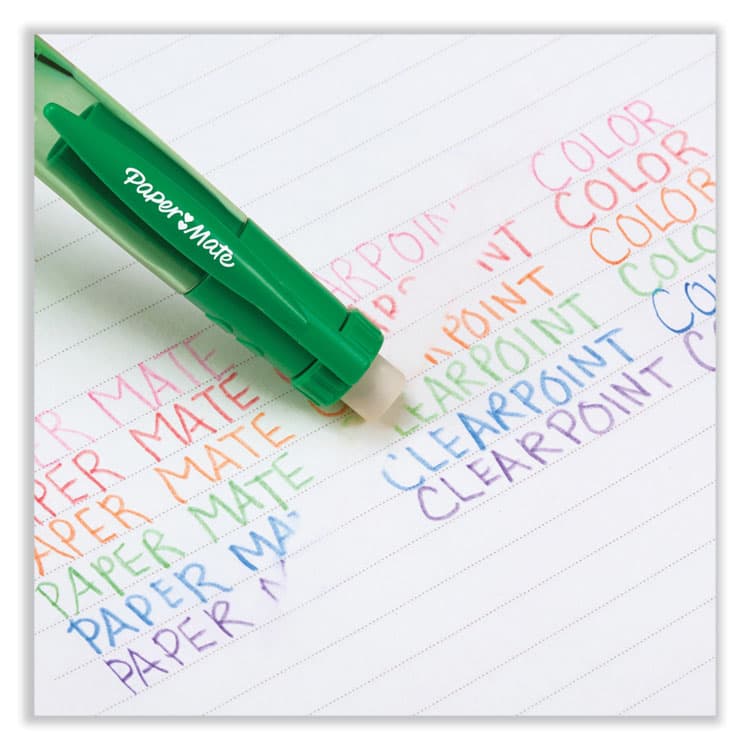 Paper Mate
APER MATE ARPOIN COLOR
PER MATE NT COLOR
APER MATE POINT COLOR
PAPER MATE LEARPOINT COLO
PAPER MA CLEARPOINT CO
PAPER CLEARPOINT C